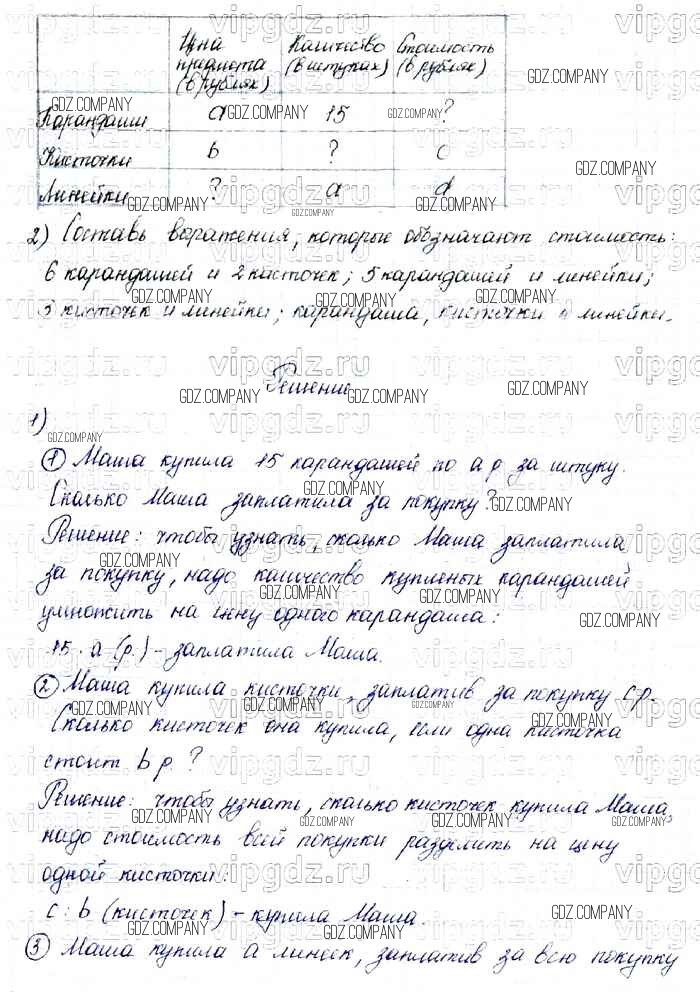 Цена Количество Стоимость
предмета (в штуках) (в рублях)
(в рублях)
Карандаши a 15 ?
Кисточки b ? c
Линейки ? a d
2) Составь выражения, которые обозначают стоимость:
6 карандашей и 2 кисточек; 5 карандашей и линейки;
3 кисточек и линейки; карандаша, кисточки и линейки.
Решение
1)
① Маша купила 15 карандашей по a р. за штуку.
Сколько Маша заплатила за покупку?
Решение: чтобы узнать, сколько Маша заплатила
за покупку, надо количество купленых карандашей
умножить на цену одного карандаша:
15 · a (р.) - заплатила Маша.
② Маша купила кисточки, заплатив за покупку c р.
Сколько кисточек она купила, если одна кисточка
стоит b р. ?
Решение: чтобы узнать, сколько кисточек купила Маша,
надо стоимость всей покупки разделить на цену
одной кисточки:
c : b (кисточек) - купила Маша.
③ Маша купила a линеек, заплатив за всю покупку
GDZ.COMPANY
vipgdz.ru